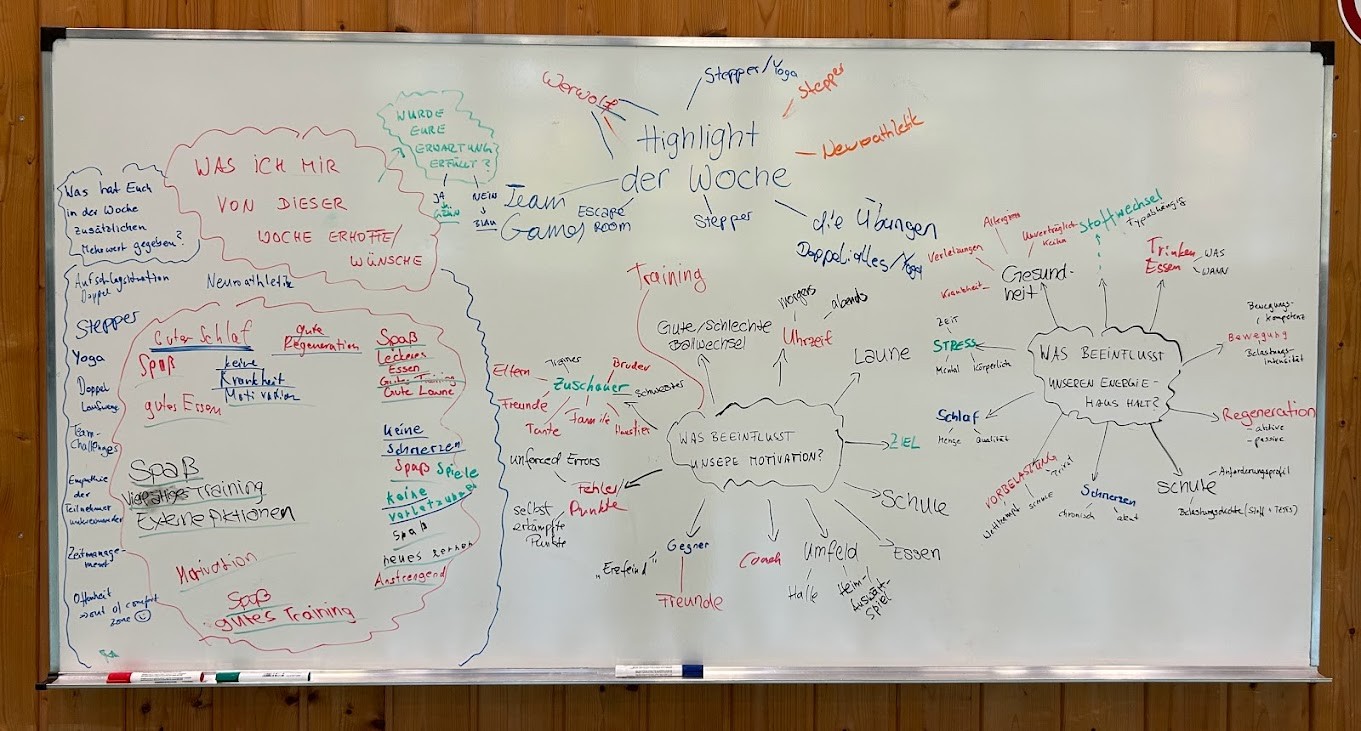 Was hat Euch
in der Woche
zusätzlichen
Mehrwert gegeben?
Aufschlagsituation
Doppel
Neuroathletik
Stepper
Yoga
Doppel
Laufwege
Team-
Challenges
Empathie
der
Teilnehmer
untereinander
Zeitmanage-
ment
Offenheit
→ out of comfort
zone ☺
WAS ICH MIR
VON DIESER
WOCHE ERHOFFE/
WÜNSCHE
WURDE
EURE
ERWARTUNG
ERFÜLLT?
JA
GRÜN
NEIN
↓
BLAU
Guter Schlaf
gute
Regeneration
Spaß
Leckeres
Essen
Gutes Training
Gute Laune
Spaß
keine
Krankheit
Motivation
gutes Essen
keine
Schmerzen
Spaß Spiele
keine
Spaß
neues lernen
Anstrengend
Spaß
Training
Motivation
Spaß
gutes Training
Highlight
der Woche
Werwolf
Stepper/Yoga
Stepper
Neuroathletik
Team
Games
ESCAPE
ROOM
Stepper
die Übungen
WAS BEEINFLUSST
UNSERE MOTIVATION?
Training
Gute/Schlechte
Ballwechsel
Uhrzeit
morgens
abends
Laune
ZIEL
Schule
Essen
Umfeld
Halle
Heim-/
Auswärts-
spiel
Coach
Gegner
"Erzfeind"
Freunde
Fehler
Punkte
unforced Errors
selbst
erkämpfte
Punkte
Zuschauer
Eltern
Trainer
Bruder
Schwester
Haustier
Familie
Tante
Freunde
WAS BEEINFLUSST
UNSEREN ENERGIE-
HAUSHALT?
Gesund-
heit
Krankheit
Verletzungen
Allergien
Stoffwechsel
Typabhängig
Trinken
Essen
WAS
WANN
Bewegung
Bewegungs-
kompetenz
Belastungs-
intensität
Regeneration
- aktive
- passive
Schule
Anforderungsprofil
Schmerzen
chronisch
akut
VORBELASTUNG
Wettkampf
Schule
Privat
Schlaf
Menge
Qualität
STRESS
Zeit
Mental
Körperlich